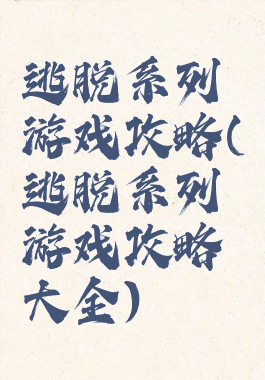 逃脱系列
游戏攻略(
逃脱系列
游戏攻略
大全)